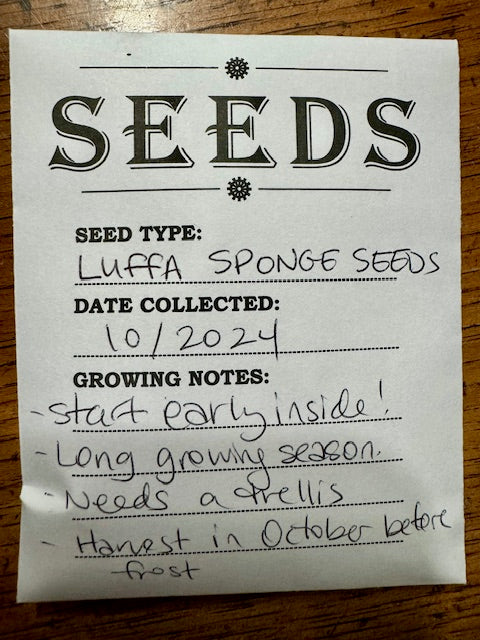 SEEDS
SEED TYPE:
LUFFA SPONGE SEEDS
DATE COLLECTED:
10/2024
GROWING NOTES:
- Start early inside!
- Long growing season.
- Needs a trellis
- Harvest in October before
frost